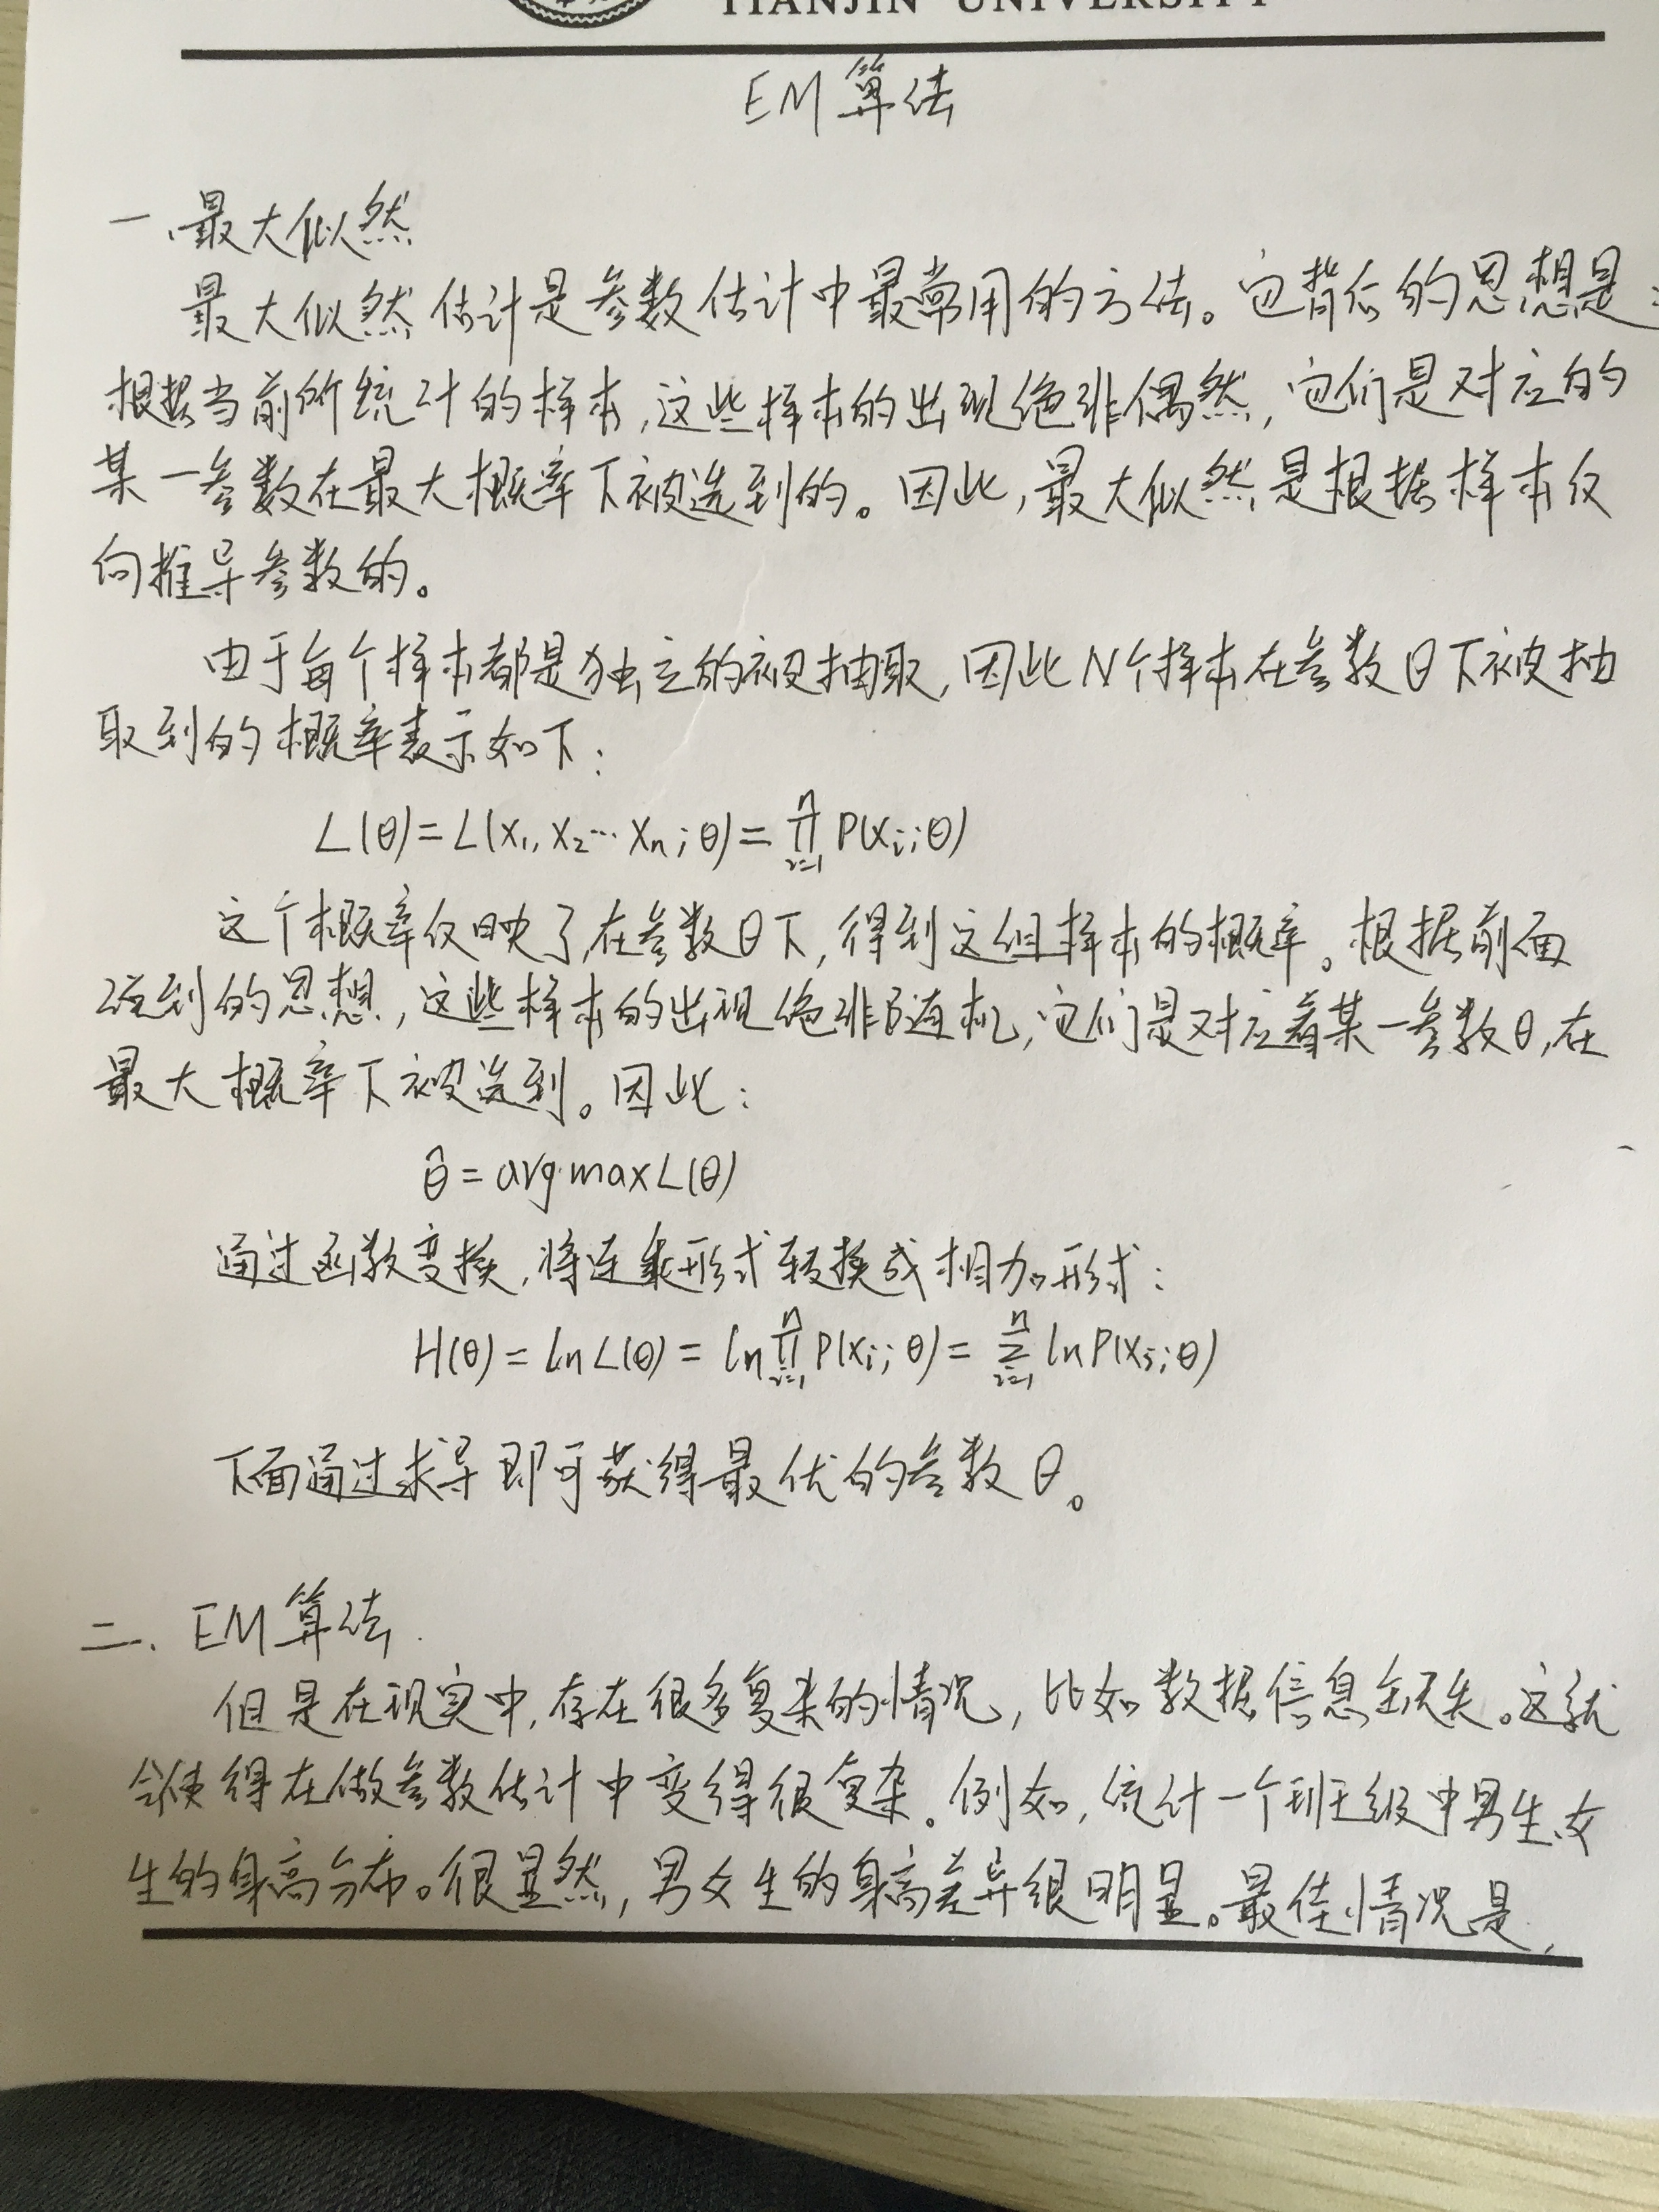 TIANJIN UNIVERSITY
EM算法
一、最大似然
最大似然估计是参数估计中最常用的方法。它背后的思想是：
根据当前所统计的样本,这些样本的出现绝非偶然,它们是对应的
某一参数在最大概率下被选到的。因此,最大似然是根据样本仅
向推导参数的。
由于每个样本都是独立的被抽取,因此N个样本在参数θ下被抽
取到的概率表示如下：
L(θ)=L(x₁,x₂…xₙ;θ)=∏ⁿᵢ₌₁P(xᵢ;θ)
这个概率仅映了,在参数θ下,得到这组样本的概率。根据前面
提到的思想,这些样本的出现绝非随机,它们是对应着某一参数θ,在
最大概率下被选到。因此：
θ̂=arg·maxL(θ)
通过函数变换,将连乘形式转换成相加形式：
H(θ)=lnL(θ)=ln∏ⁿᵢ₌₁P(xᵢ;θ)=∑ⁿᵢ₌₁lnP(xᵢ;θ)
下面通过求导即可获得最优的参数θ。
二、EM算法.
但是在现实中,存在很多复杂的情况,比如数据信息缺失。这就
会使得在做参数估计中变得很复杂。例如,统计一个班级中男生、女
生的身高分布。很显然,男女生的身高差异很明显。最佳情况是,